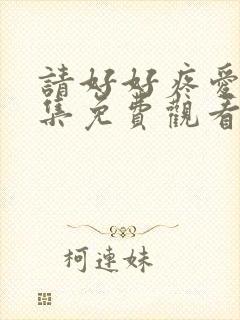 請好好疼愛
集免費觀看
柯連妹